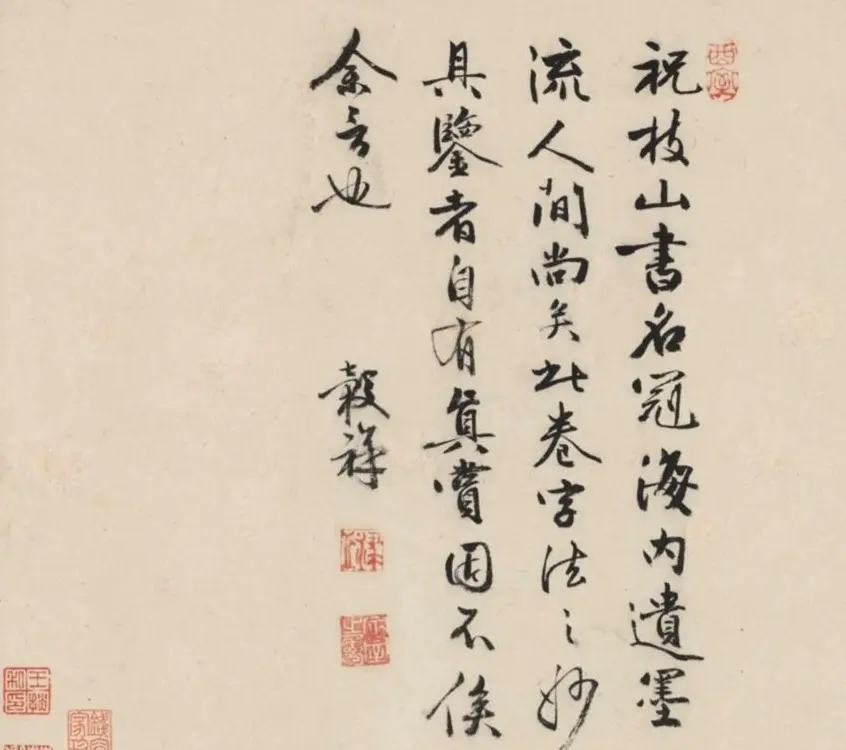 祝枝山書名冠海内遺墨
流人間尚矣此卷字法之妙
具鑒者自有真賞固不俟
余言也
穀祥